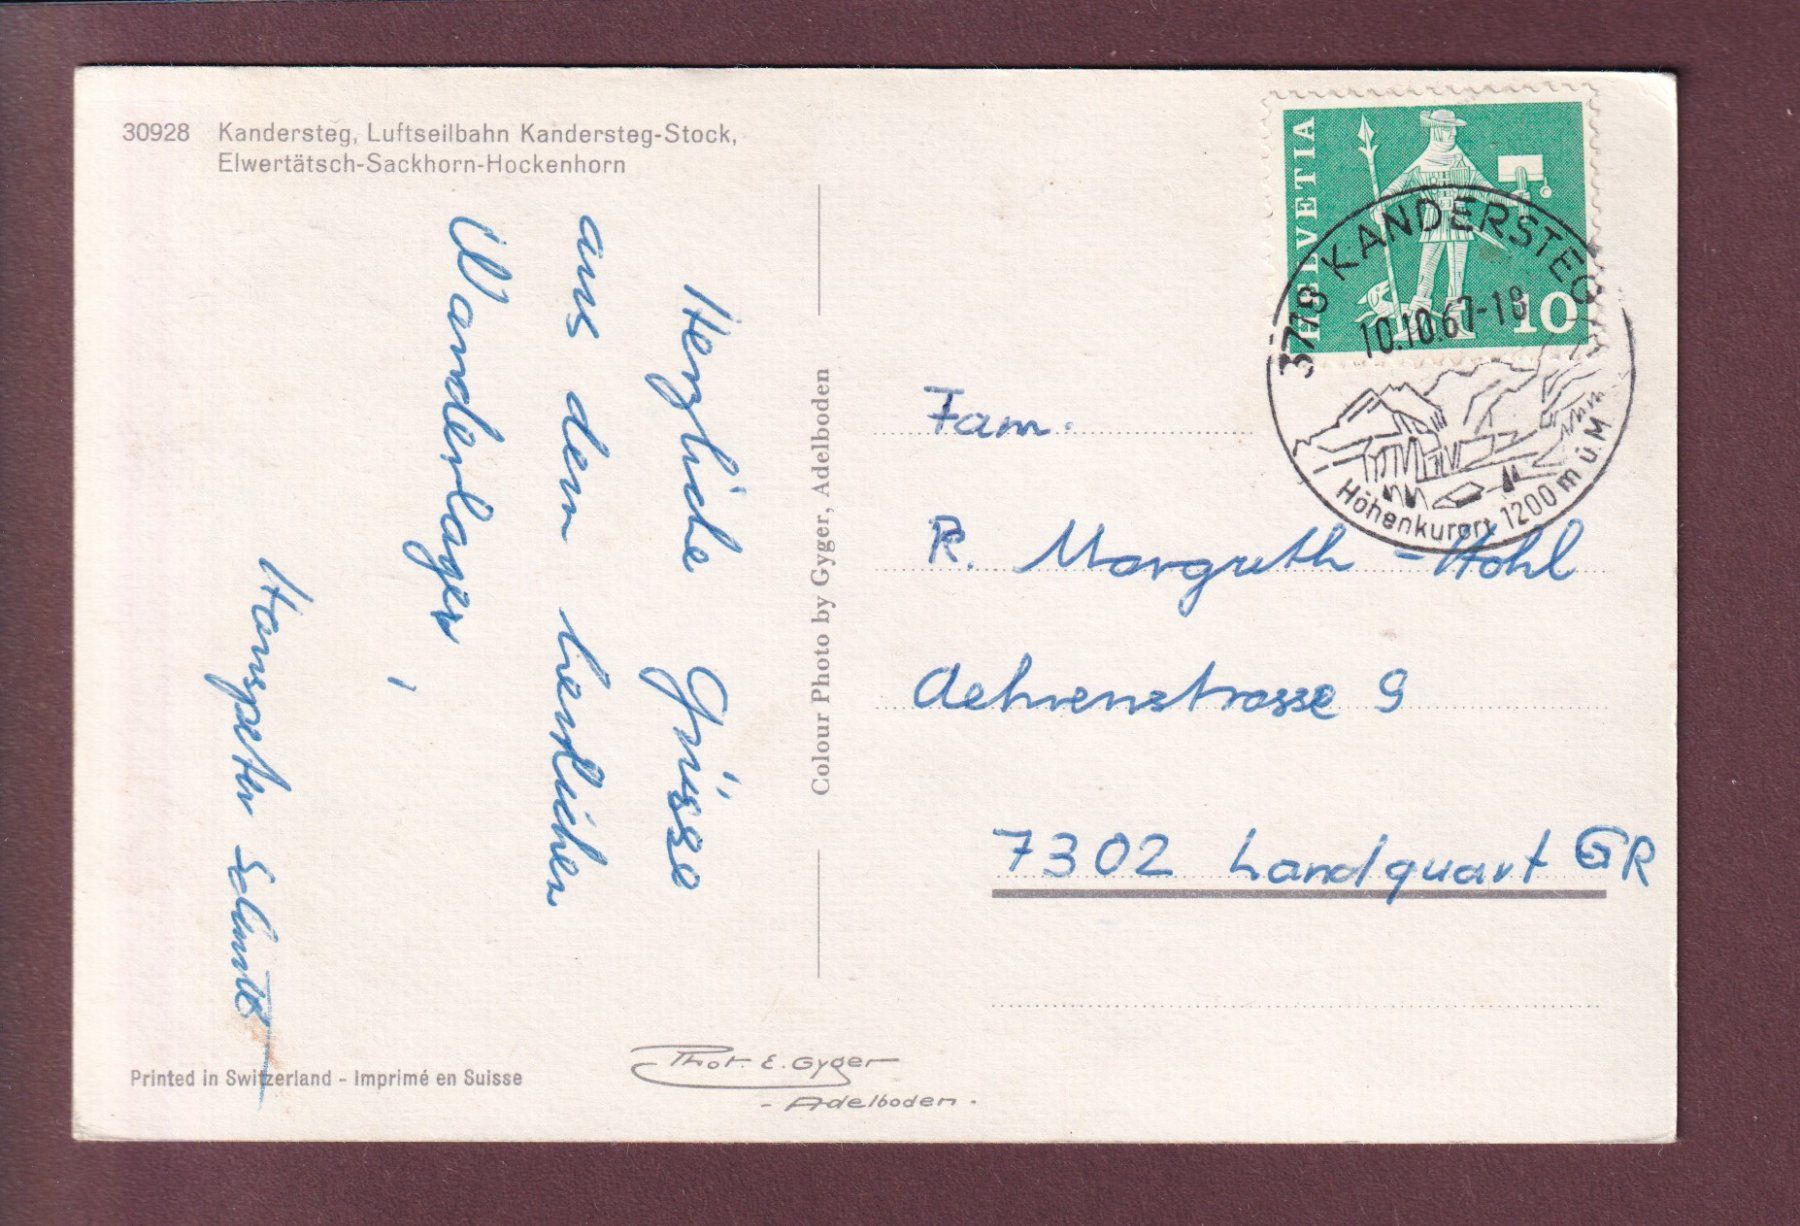 30928 Kandersteg, Luftseilbahn Kandersteg-Stock,
Elwertätsch-Sackhorn-Hockenhorn
Herzliche Grüsse
aus dem herrlichen
Wanderlager,
Hanspeter
Printed in Switzerland - Imprimé en Suisse
Colour Photo by Gyger, Adelboden
Phot. E. Gyger
- Adelboden -
HELVETIA
10
3718 KANDERSTEG
10.10.67-18
Höhenkurort 1200 m ü.M
Fam.
R. Margreth - Hohl
Aehrenstrasse 9
7302 Landquart GR